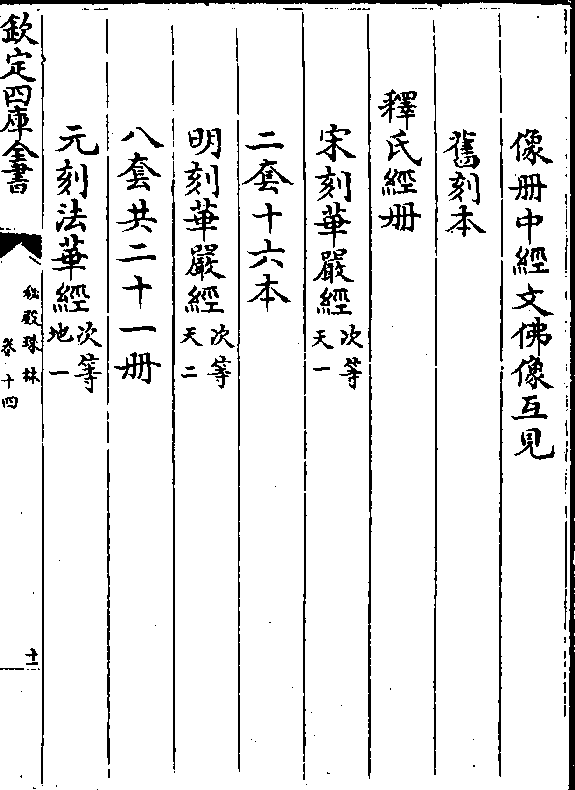 像册中經文佛像互見
舊刻本
釋氏經册
宋刻華嚴經次等天一
二套十六本
明刻華嚴經次等天二
八套共二十一册
元刻法華經次等地一
欽定四庫全書
秘殿珠林
卷十四
十一